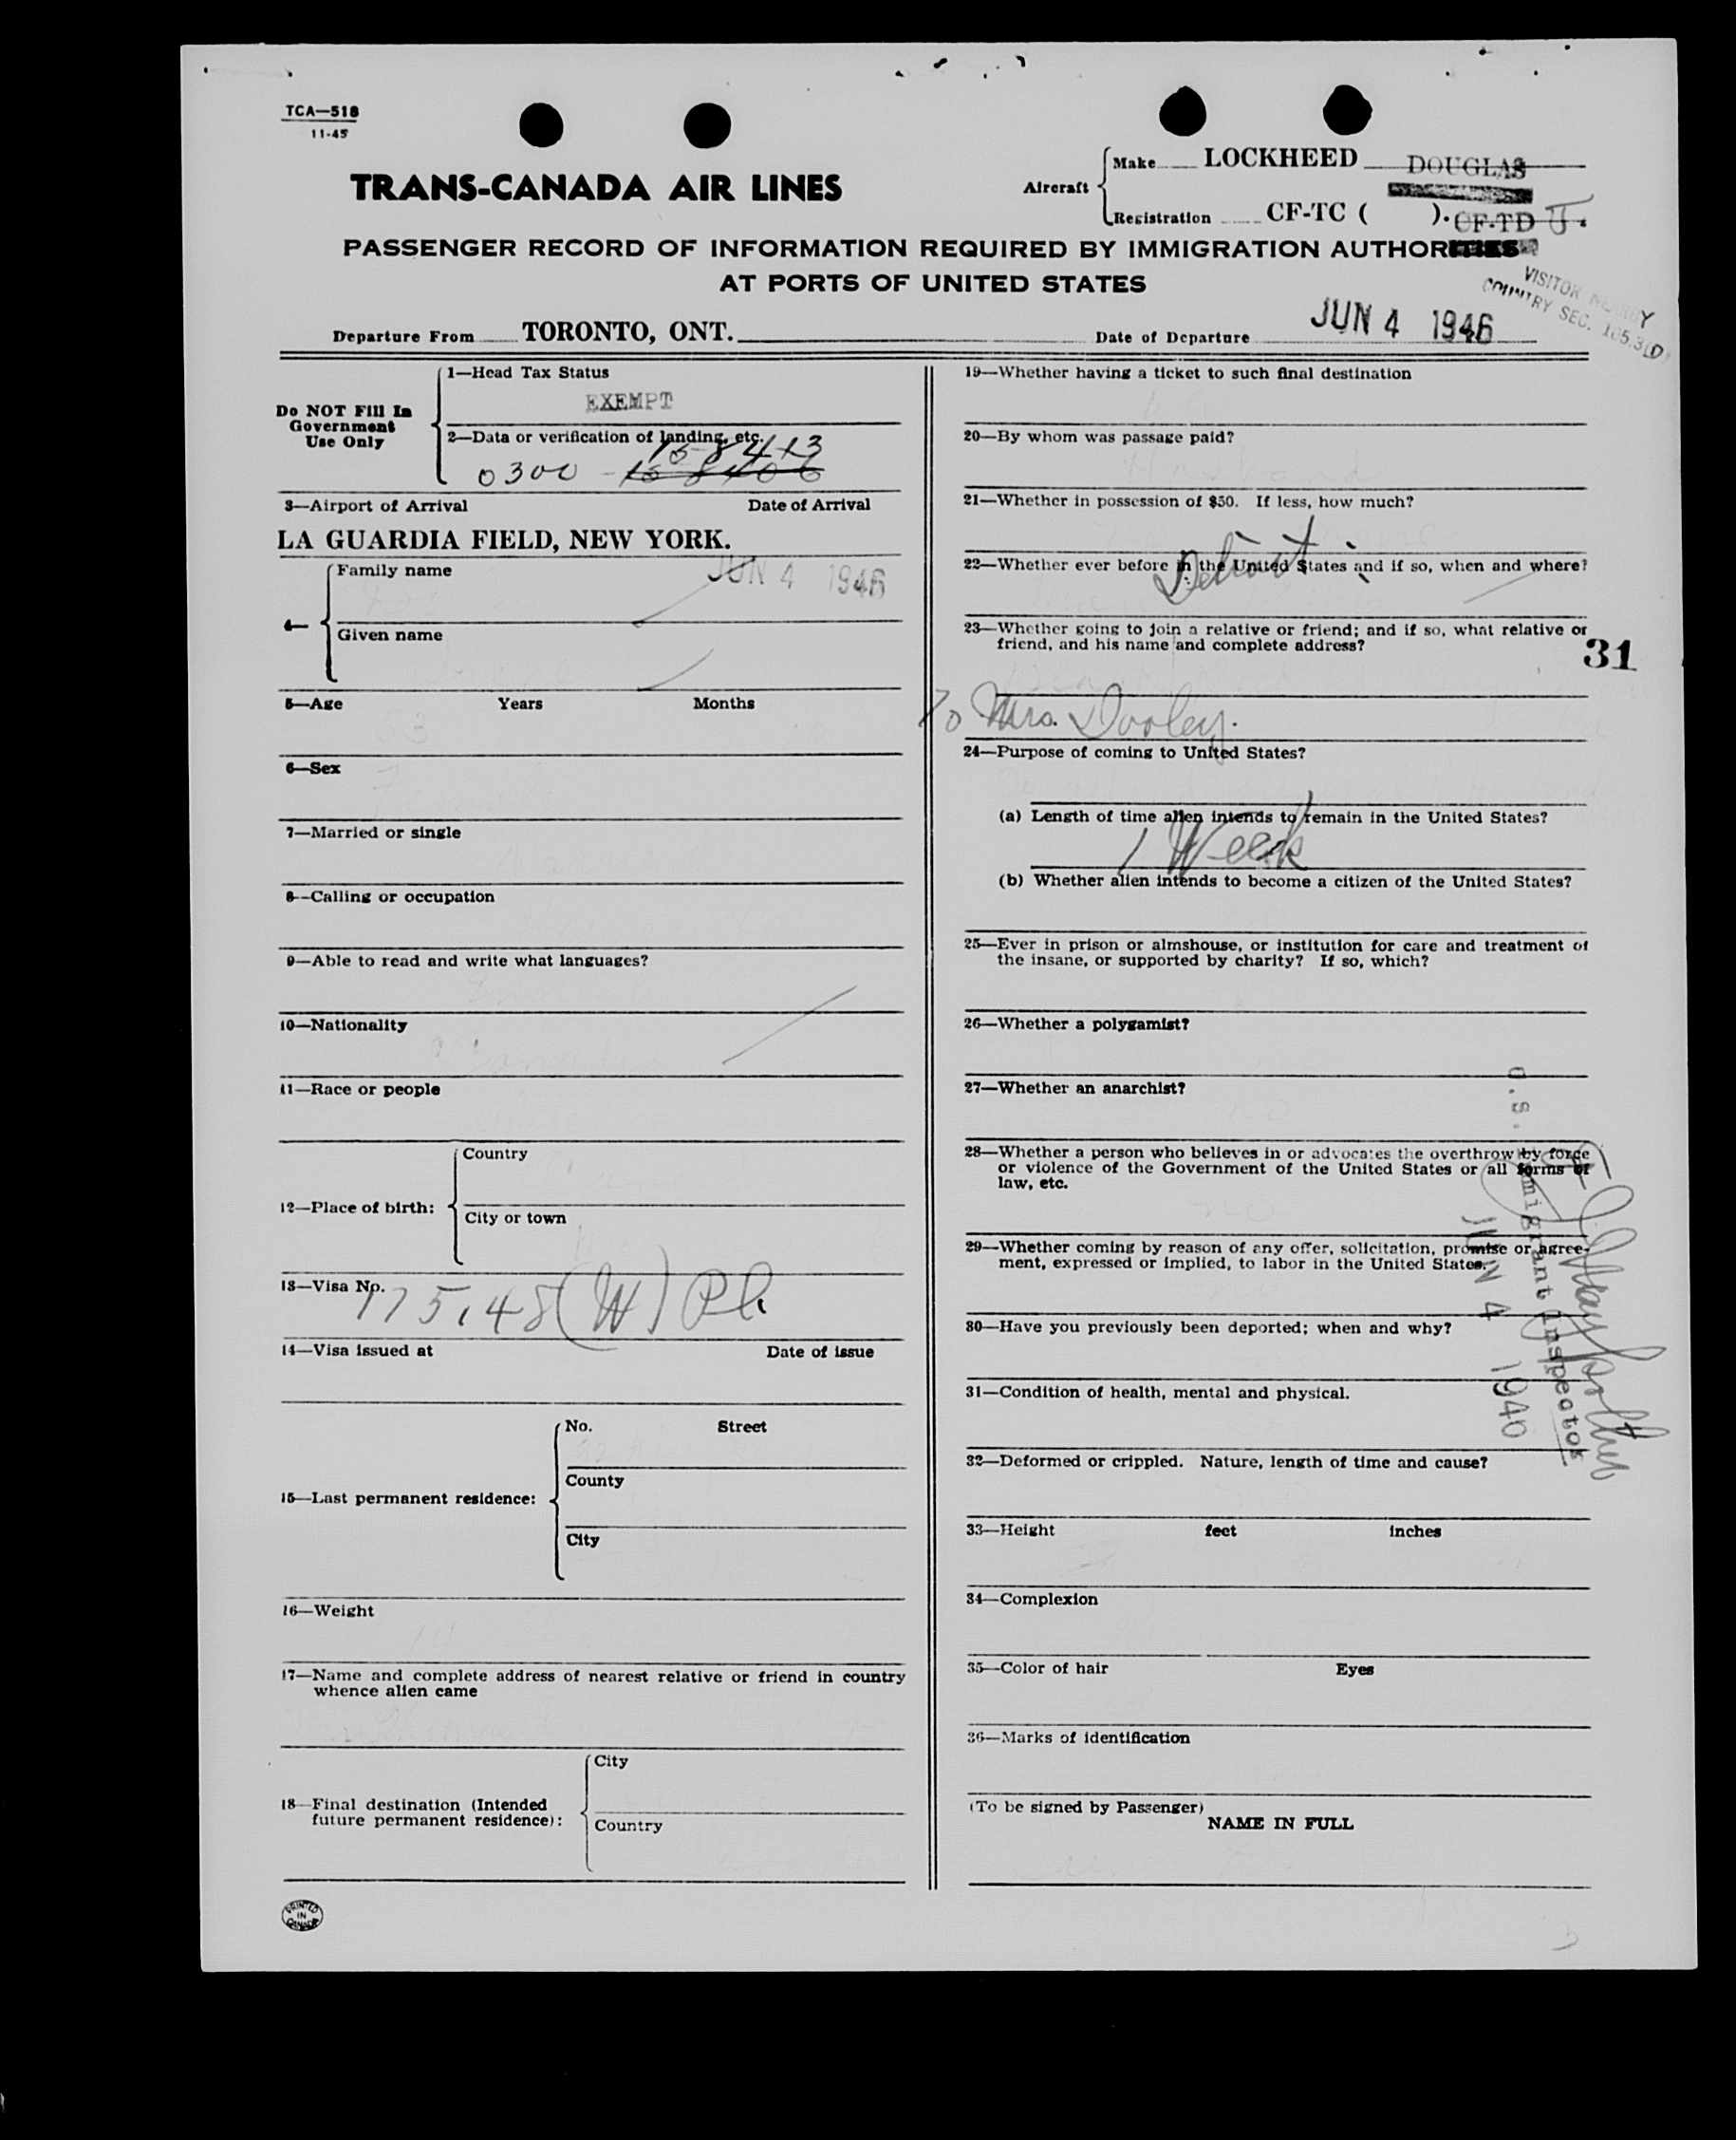 TCA—518
11-45
TRANS-CANADA AIR LINES
Aircraft
Make LOCKHEED DOUGLAS
Registration CF-TC ( ). CF-TD U.
PASSENGER RECORD OF INFORMATION REQUIRED BY IMMIGRATION AUTHORITIES
AT PORTS OF UNITED STATES
VISITOR
COUNTRY SEC.
Departure From TORONTO, ONT. Date of Departure JUN 4 1946
Do NOT Fill In
Government
Use Only
1—Head Tax Status
EXEMPT
2—Data or verification of landing, etc.
0300
3—Airport of Arrival Date of Arrival
LA GUARDIA FIELD, NEW YORK.
JUN 4 1946
4—
Family name
Given name
5—Age Years Months
6—Sex
7—Married or single
8—Calling or occupation
9—Able to read and write what languages?
10—Nationality
11—Race or people
12—Place of birth:
Country
City or town
13—Visa No.
14—Visa issued at Date of issue
15—Last permanent residence:
No. Street
County
City
16—Weight
17—Name and complete address of nearest relative or friend in country
whence alien came
18—Final destination (Intended
future permanent residence):
City
Country
PRINTED
IN
CANADA
19—Whether having a ticket to such final destination
20—By whom was passage paid?
21—Whether in possession of $50. If less, how much?
22—Whether ever before in the United States and if so, when and where?
Detroit
23—Whether going to join a relative or friend; and if so, what relative or
friend, and his name and complete address?
31
To Mrs. Dooley.
24—Purpose of coming to United States?
(a) Length of time alien intends to remain in the United States?
1 Week
(b) Whether alien intends to become a citizen of the United States?
25—Ever in prison or almshouse, or institution for care and treatment of
the insane, or supported by charity? If so, which?
26—Whether a polygamist?
27—Whether an anarchist?
28—Whether a person who believes in or advocates the overthrow by force
or violence of the Government of the United States or all forms of
law, etc.
29—Whether coming by reason of any offer, solicitation, promise or agree-
ment, expressed or implied, to labor in the United States.
30—Have you previously been deported; when and why?
31—Condition of health, mental and physical.
32—Deformed or crippled. Nature, length of time and cause?
33—Height feet inches
34—Complexion
35—Color of hair Eyes
36—Marks of identification
(To be signed by Passenger)
NAME IN FULL
U.S. Immigrant Inspector
JUN 4